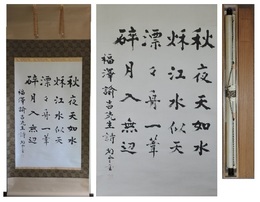 秋夜天如水
秋江水似天
漂々舟一葦
砕月入無辺
福澤諭吉先生詩